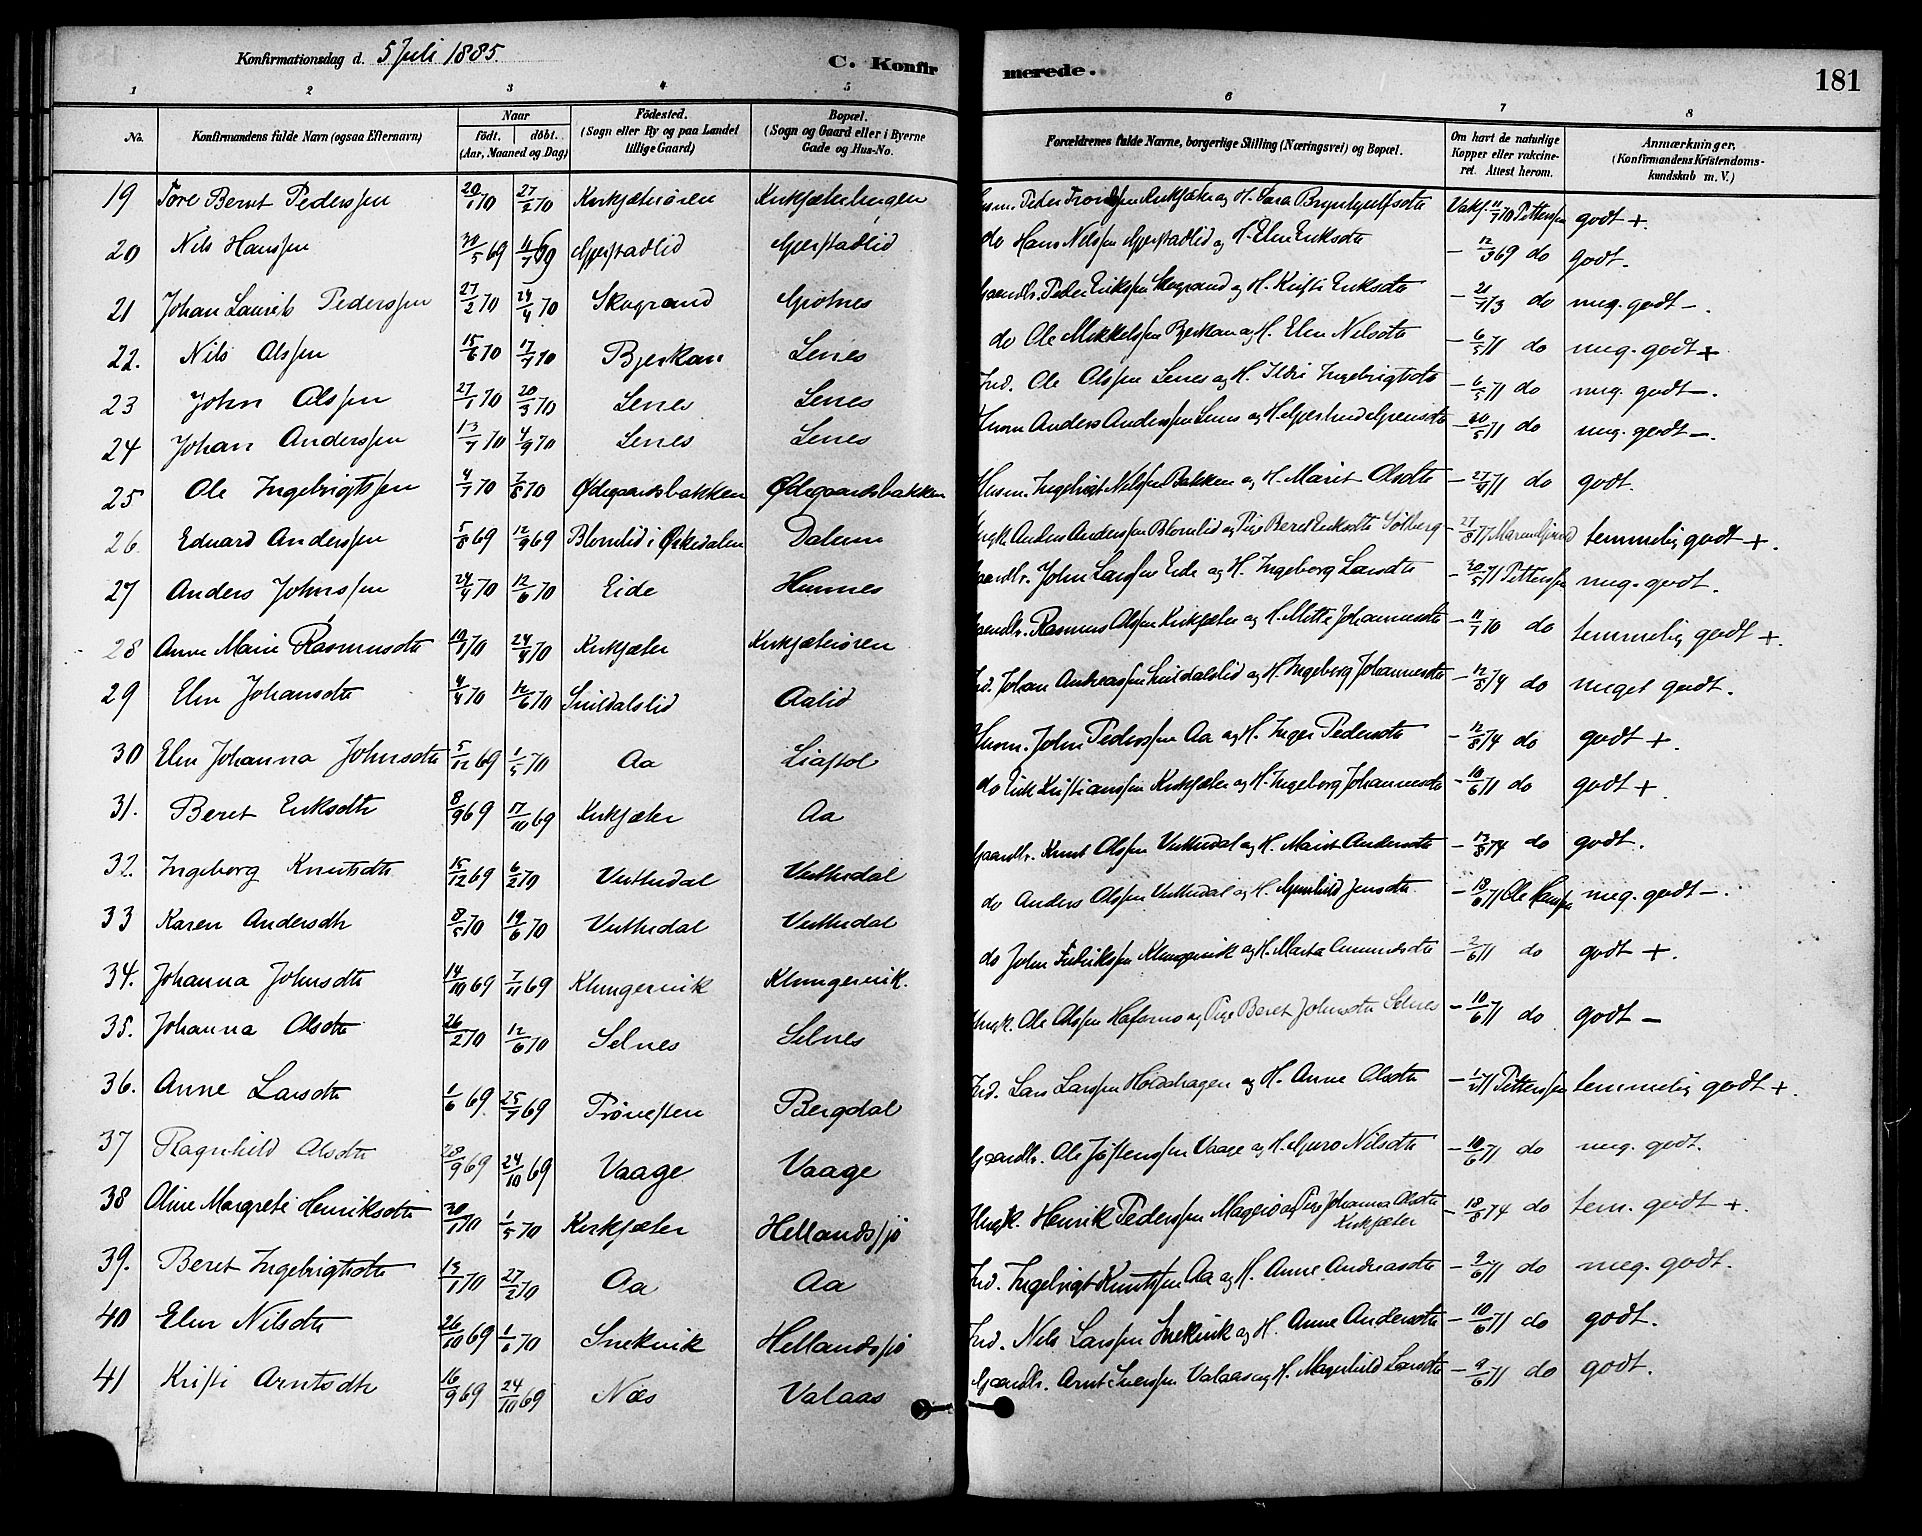 Konfirmationsdag d. 5 Juli 1885. C. Konfirmerede. 181
1 2 3 4 5 6 7 8
No. Konfirmandens fulde Navn (ogsaa Efternavn) Naar födt. döbt. (Aar, Maaned og Dag) Födested. (Sogn eller By og paa Landet tillige Gaard) Bopæl. (Sogn og Gaard eller i Byerne Gade og Hus-No. Forældrenes fulde Navne, borgerlige Stilling (Næringsvei) og Bopæl. Om havt de naturlige Kopper eller vakcineret. Attest herom. Anmærkninger. (Konfirmandens Kristendomskundskab m. V.)
19 Tore Beret Pederssen 20/1 70 27/2 70 Kirksæterören Kirksæterhaugen Husm. Peder Kirksæter og H. Sara Brynhyulfsdtr Vakc. 11/7 70 Pettersen godt +.
20 Nils Hanssen 30/5 69 11/7 69 Gjerstadlid Gjerstadlid do Hans Nilssen Gjerstadlid og H. Elen Eriksdtr - 12/3 69 do godt.
21 Johan Laurits Pederssen 27/2 70 24/4 70 Skogrand Gjotnes Gaardbr. Peder Erikssen Skogrand og H. Kristi Eriksdtr do meg. godt -.
22. Nils Olssen 15/6 70 17/7 70 Bjerkan Lenes do Ole Mikkelssen Bjerkan og H. Elen Nilsdtr - 6/5 71 do meg. godt +
23 John Olssen 27/1 70 20/3 70 Lenes Lenes Ind. Ole Olssen Lenes og H. Ildri Ingebrigtsdtr - 6/5 71 do meg. godt -.
24 Johan Anderssen 13/7 70 4/9 70 Lenes Lenes Husm Anders Anderssen Lenes og H. - 20/5 71 do meg. godt -.
25 Ole Ingebrigtssen 4/7 70 7/8 70 Ødegaardsbakken Ødegaardsbakken Husm. Ingebrigt Nilssen Bakken og H. Marit Olsdtr - 27/4 71 do godt.
26. Edvard Anderssen 5/8 69 12/9 69 Blomlid i Ørkedalen Dalum Ungk. Anders Anderssen Blomlid og Pige Beret Eriksdtr Solberg - 27/8 77 temmelig godt +.
27 Anders Johnssen 24/4 70 12/6 70 Eide Hennes Gaardbr. John Larssen Eide og H. Ingeborg Larsdtr - 20/5 71 Pettersen meg. godt.
28 Anne Marie Rasmusdtr 10/4 70 24/4 70 Kirksæter Kirksæterören Gaardbr. Rasmus Olssen Kirksæter og H. Mette Johannesdtr - 11/7 70 do temmelig godt +
29 Elen Johansdtr 4/4 70 12/6 70 Snildalslid Aalid Ind. Johan Andreassen Snildalslid og H. Ingeborg Johannesdtr - 12/8 74 do meget godt.
30 Elen Johanna Johnsdtr 5/12 69 1/5 70 Aa Liastol Husm. John Pederssen Aa og H. Inger Pedersdtr - 12/8 74 do godt +.
31. Beret Eriksdtr 8/9 69 17/10 69 Kirksæter Aa do Erik Kristianssen Kirksæter og H. Ingeborg Johannesdtr - 10/6 71 do godt +
32. Ingeborg Knutsdtr 15/12 69 6/2 70 Vuttudal Vuttudal Gaardbr. Knut Olssen Vuttudal og H. Marit Andersdtr - 12/8 74 do godt.
33 Karen Andersdtr 8/5 70 19/6 70 Vuttudal Vuttudal do Anders Olssen Vuttudal og H. Gunhild Jensdtr - 18/6 71 Ole Hanssen meg. godt -.
34. Johanna Johnsdtr 14/10 69 7/11 69 Klungervik Klungervik. do John Fredrikssen Klungervik og H. Marta Amundsdtr - 2/6 71 do godt +.
35. Johanna Olsdtr 26/2 70 12/6 70 Selnes Selnes Ungk. Ole Olssen og Pige Beret Johnsdtr Selnes - 10/6 71 do godt -
36. Anne Larsdtr 1/6 69 25/7 69 Prövesten Bergdal Ind. Lars Larssen Holdahagen og H. Anne Olsdtr Pettersen temmelig godt +.
37 Ragnhild Olsdtr 28/9 69 24/10 69 Vaage Vaage Gaardbr. Ole Jostenssen Vaage og H. Guro Nilsdtr - 10/6 71 do meg. godt.
38 Oline Margrete Henriksdtr 20/1 70 1/5 70 Kirksæter Hellandssjö Ungk. Henrik Pederssen Magerö og Pige Johanna Olsdtr Kirksæter - 18/8 74 do tem. godt +.
39. Beret Ingebrigtsdtr 13/1 70 27/2 70 Aa Aa Ind. Ingebrigt Knutssen Aa og H. Anne Andreasdtr - 9/6 71 do meg. godt.
40 Elen Nilsdtr 26/10 69 1/6 70 Snekvik Hellandssjö Ind. Nils Larssen Snekvik og H. Anne Andersdtr - 10/6 71 do godt.
41 Kristi Arntsdtr 16/9 69 24/10 69 Næs Valaas Gaardbr. Arnt Iverssen Valaas og H. Magnhild Larsdtr - 9/6 71 do godt.